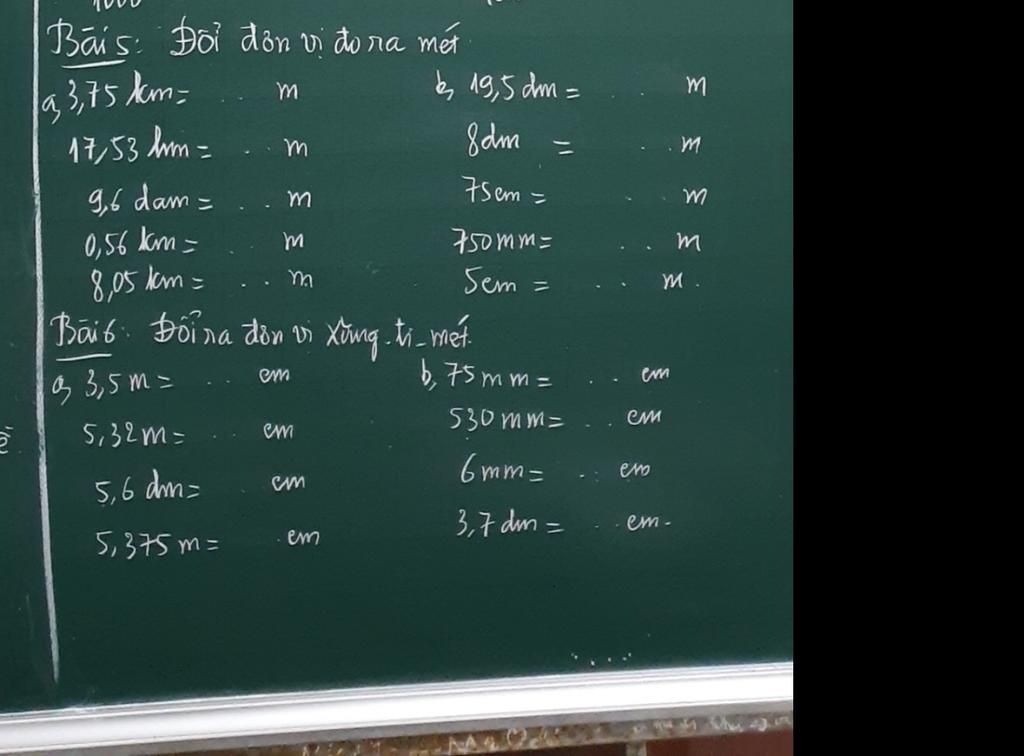 Bài 5: Đổi đơn vị đo ra mét
a, 3,75 km = .. m
b, 19,5 dm = .. m
17,53 hm = .. m
8dm = .. m
9,6 dam = .. m
75cm = .. m
0,56 km = .. m
750mm = .. m
8,05 km = .. m
5cm = .. m.
Bài 6: Đổi ra đơn vị xăng-ti-mét.
a, 3,5 m = .. cm
b, 75 mm = .. cm
5,32m = .. cm
530 mm = .. cm
5,6 dm = .. cm
6mm = .. cm
5,375 m = . cm
3,7 dm = .. cm.